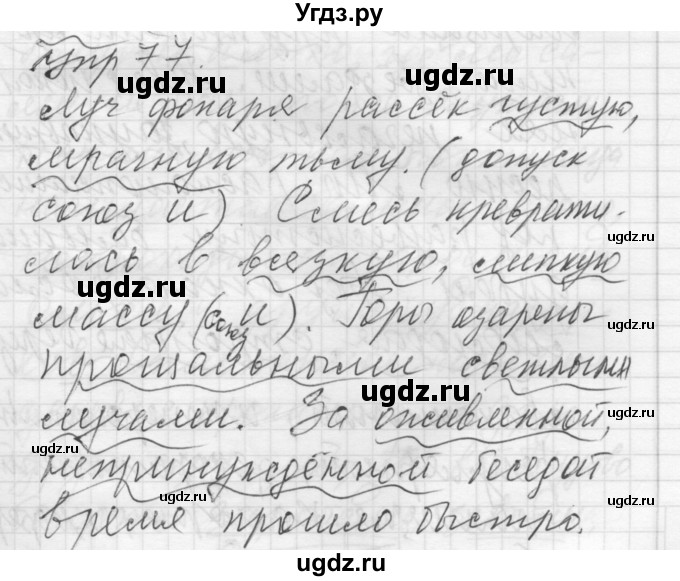 Угдз.ру
Упр 77.
Луч фонаря рассёк густую,
мрачную тьму. (допуск
союз И) Смесь преврати-
лась в вязкую, липкую
массу (союз И). Горы озарены
прощальными светлыми
лучами. За оживленной,
непринуждённой беседой
время прошло быстро.
ugdz.ru
ugdz.ru
ugdz.ru
ugdz.ru
ugdz.ru
ugdz.ru
ugdz.ru
ugdz.ru
ugdz.ru
ugdz.ru
ugdz.ru
ugdz.ru